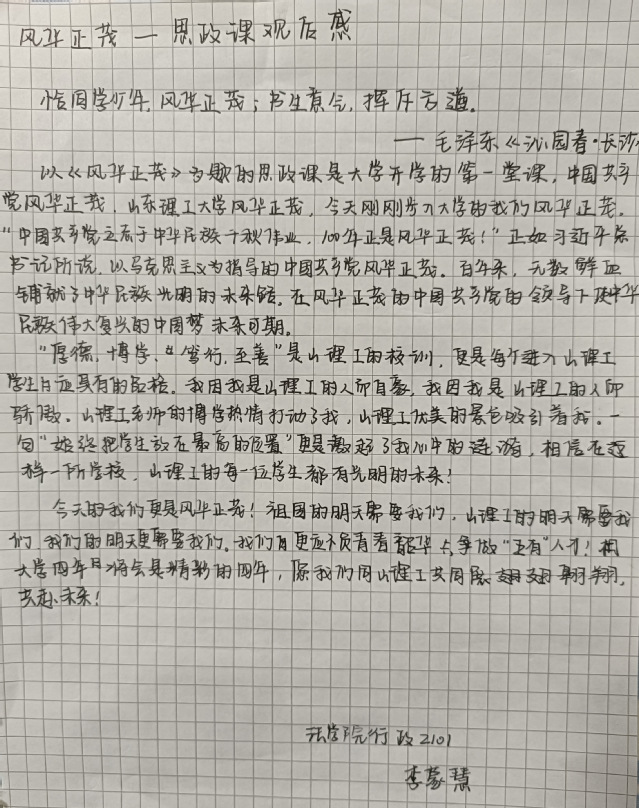 风华正茂—思政课观后感
恰同学少年,风华正茂;书生意气,挥斥方遒。
——毛泽东《沁园春·长沙
以《风华正茂》为题的思政课是大学开学的第一堂课,中国共产
党风华正茂,山东理工大学风华正茂,今天刚刚步入大学的我们风华正茂。
“中国共产党立志于中华民族千秋伟业,100年正是风华正茂!”正如习近平总
书记所说,以马克思主义为指导的中国共产党风华正茂。百年来,无数鲜血
铺就了中华民族光明的未来路。在风华正茂的中国共产党的领导下及中华
民族伟大复兴的中国梦未来可期。
“厚德,博学,“笃行,至善”是山理工的校训,更是每个进入山理工
学生自应具有的品格。我因我是山理工的人而自豪,我因我是山理工的人而
骄傲。山理工老师的博学热情打动了我,山理工优美的景色吸引着我。一
句“始终把学生放在最高的位置”更是激起了我心中的涟漪,相信在这
样一所学校,山理工的每一位学生都有光明的未来!
今天的我们更是风华正茂!祖国的明天需要我们,山理工的明天需要我
们,我们的明天更需要我们。我们自更应不负青春韶华,争做“五有”人才!
大学四年将会是精彩的四年,愿我们同山理工共同展翅翱翔,
共赴未来!
法学院行政2101
李蒙慧